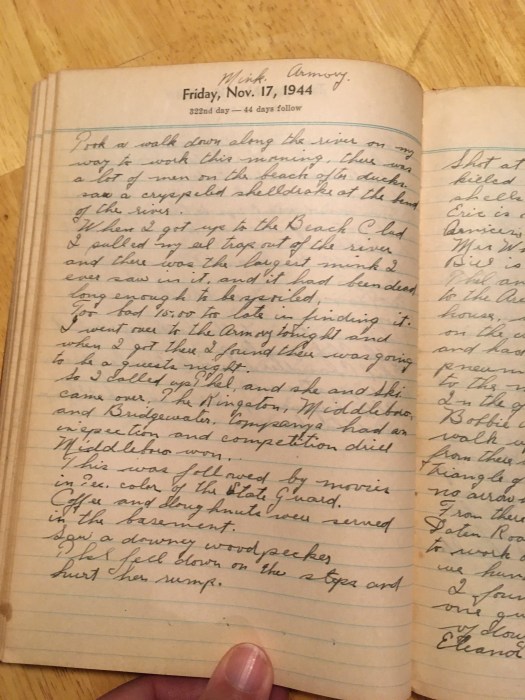 Mink. Armory.
Friday, Nov. 17, 1944
322nd day — 44 days follow
Took a walk down along the river on my
way to work this morning, there was
a lot of men on the beach after ducks,
saw a cryspeled shelldrake at the bend
of the river.
When I got up to the Beach Clad
I pulled my eel trap out of the river
and there was the largest mink I
ever saw in it, and it had been dead
long enough to be spoiled,
Too bad 15.00 too late in finding it.
I went over to the Armory tonight and
when I got there I found there was going
to be a guests night.
So I called up Thel, and she and Ski
came over. The Kingston, Middleboro,
and Bridgewater. Companys had an
inspection and competition drill
Middleboro won.
This was followed by movies
in color of the State Guard.
Coffee and doughnuts were served
in the basement.
Saw a downey woodpecker
Thel fell down on the steps and
hurt her rump.
Shot at
killed
shells
Eric is
Services
Mrs W
Bill is
Phil an
to the Au
house,
on the
and had
pneum
to the
In the
Bobbie
walk
from there
Triangle
no arrow
From there
Paten Roa
to work
we hun
I foun
one
of dou
Eleanor